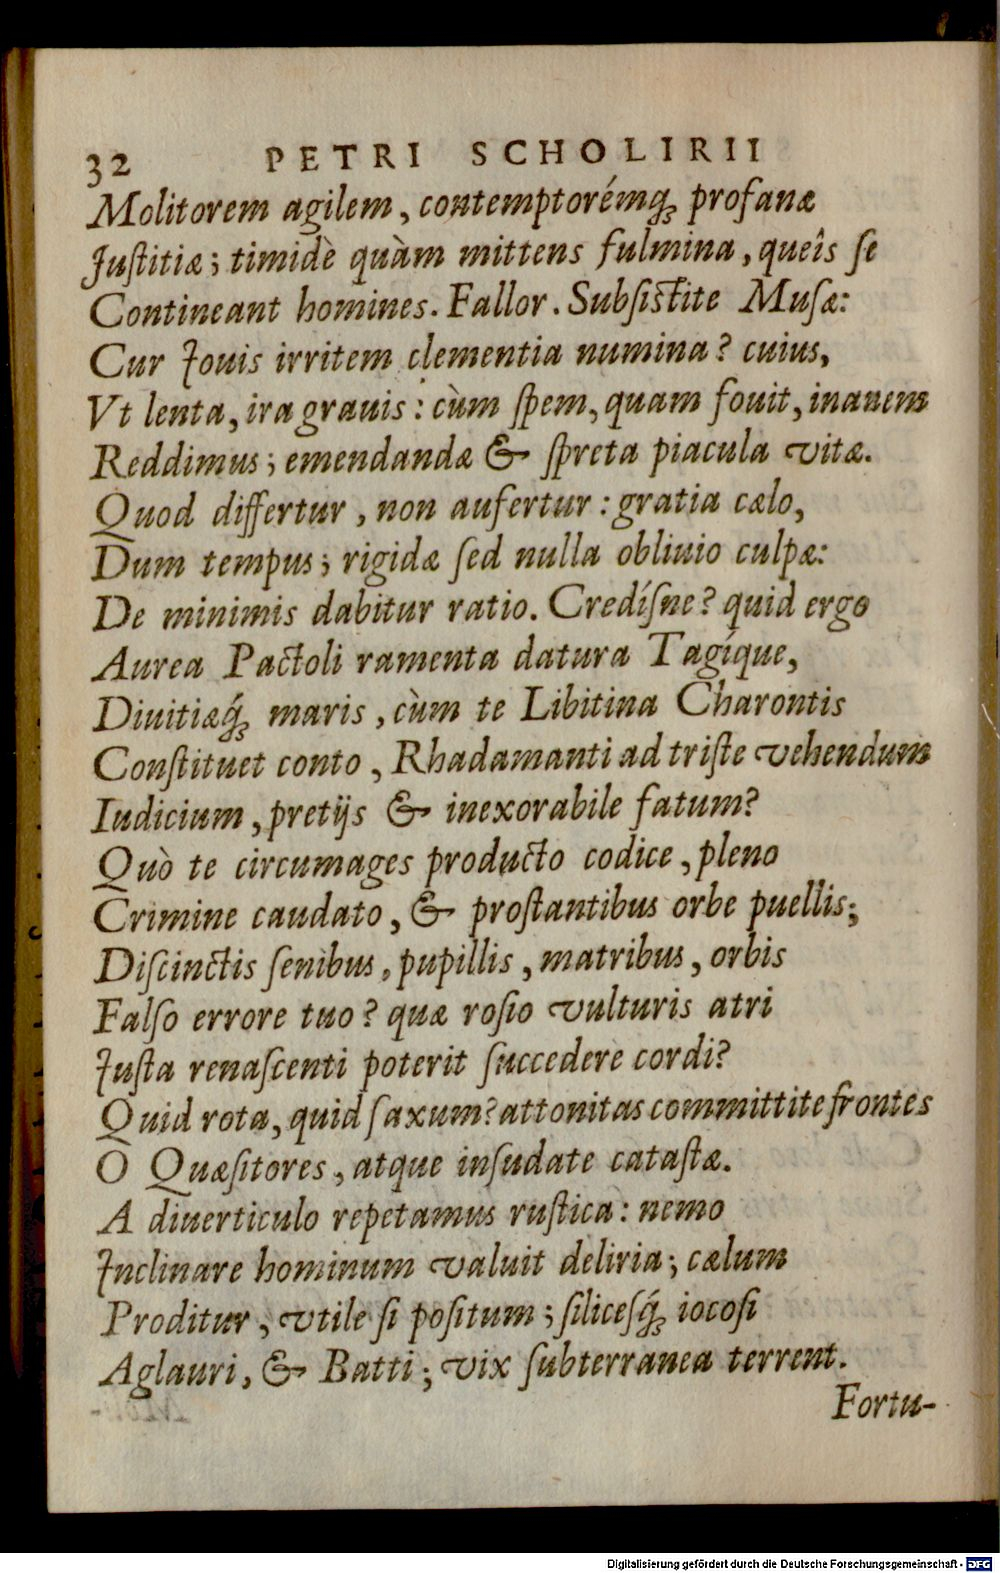 32 PETRI SCHOLIRII
Molitorem agilem, contemptorémq́ꝫ profanæ
Juſtitiæ; timidè quàm mittens fulmina, queîs ſe
Contineant homines. Fallor. Subſiſtite Muſæ:
Cur Jouis irritem clementia numina? cuius,
Vt lenta, ira grauis: cùm ſpem, quam fouit, inanem
Reddimus; emendandæ & ſpreta piacula vitæ.
Quod differtur, non aufertur: gratia cælo,
Dum tempus; rigidæ ſed nulla obliuio culpæ:
De minimis dabitur ratio. Credíſne? quid ergo
Aurea Pactoli ramenta datura Tagíque,
Diuitiæq́ꝫ maris, cùm te Libitina Charontis
Conſtituet conto, Rhadamanti ad triſte vehendum
Iudicium, pretijs & inexorabile fatum?
Quò te circumages producto codice, pleno
Crimine caudato, & proſtantibus orbe puellis;
Diſcinctis ſenibus, pupillis, matribus, orbis
Falſo errore tuo? quæ roſio vulturis atri
Juſta renaſcenti poterit ſuccedere cordi?
Quid rota, quid ſaxum? attonitas committite frontes
O Quæſitores, atque inſudate cataſtæ.
A diuerticulo repetamus ruſtica: nemo
Jnclinare hominum valuit deliria; cælum
Proditur, vtile ſi poſitum; ſiliceſq́ꝫ iocoſi
Aglauri, & Batti; vix ſubterranea terrent.
Fortu-
Digitalisierung gefördert durch die Deutsche Forschungsgemeinschaft - DFG